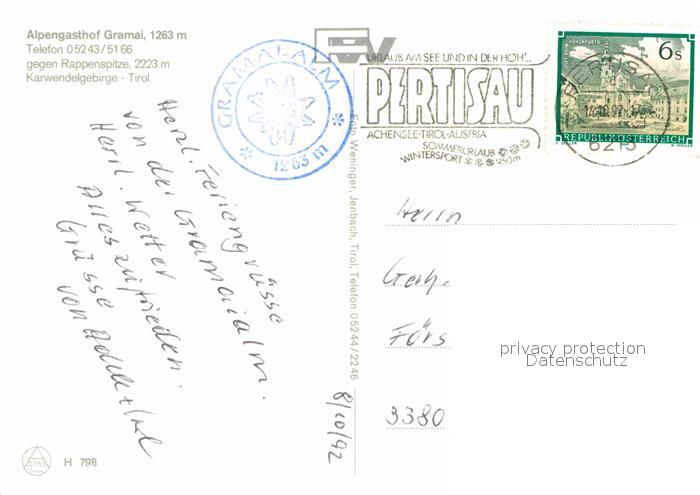 Alpengasthof Gramai, 1263 m
Telefon 05243/5166
gegen Rappenspitze, 2223 m
Karwendelgebirge - Tirol
GRAMAI ALM
1263 m
URLAUB AM SEE UND IN DER HÖH'...
PERTISAU
ACHENSEE-TIROL-AUSTRIA
SOMMERURLAUB
WINTERSPORT 950m
6s
REPUBLIK ÖSTERREICH
PERTISAU
6213
Herzl. Feriengrüsse
von der Gramaialm.
Herrl. Wetter
Alles zufrieden.
Grüsse
von
8/10/92
Foto Weninger, Jenbach, Tirol, Telefon 05244/2246
Herrn
Gerh.
Förs
3380
privacy protection
Datenschutz
H 798